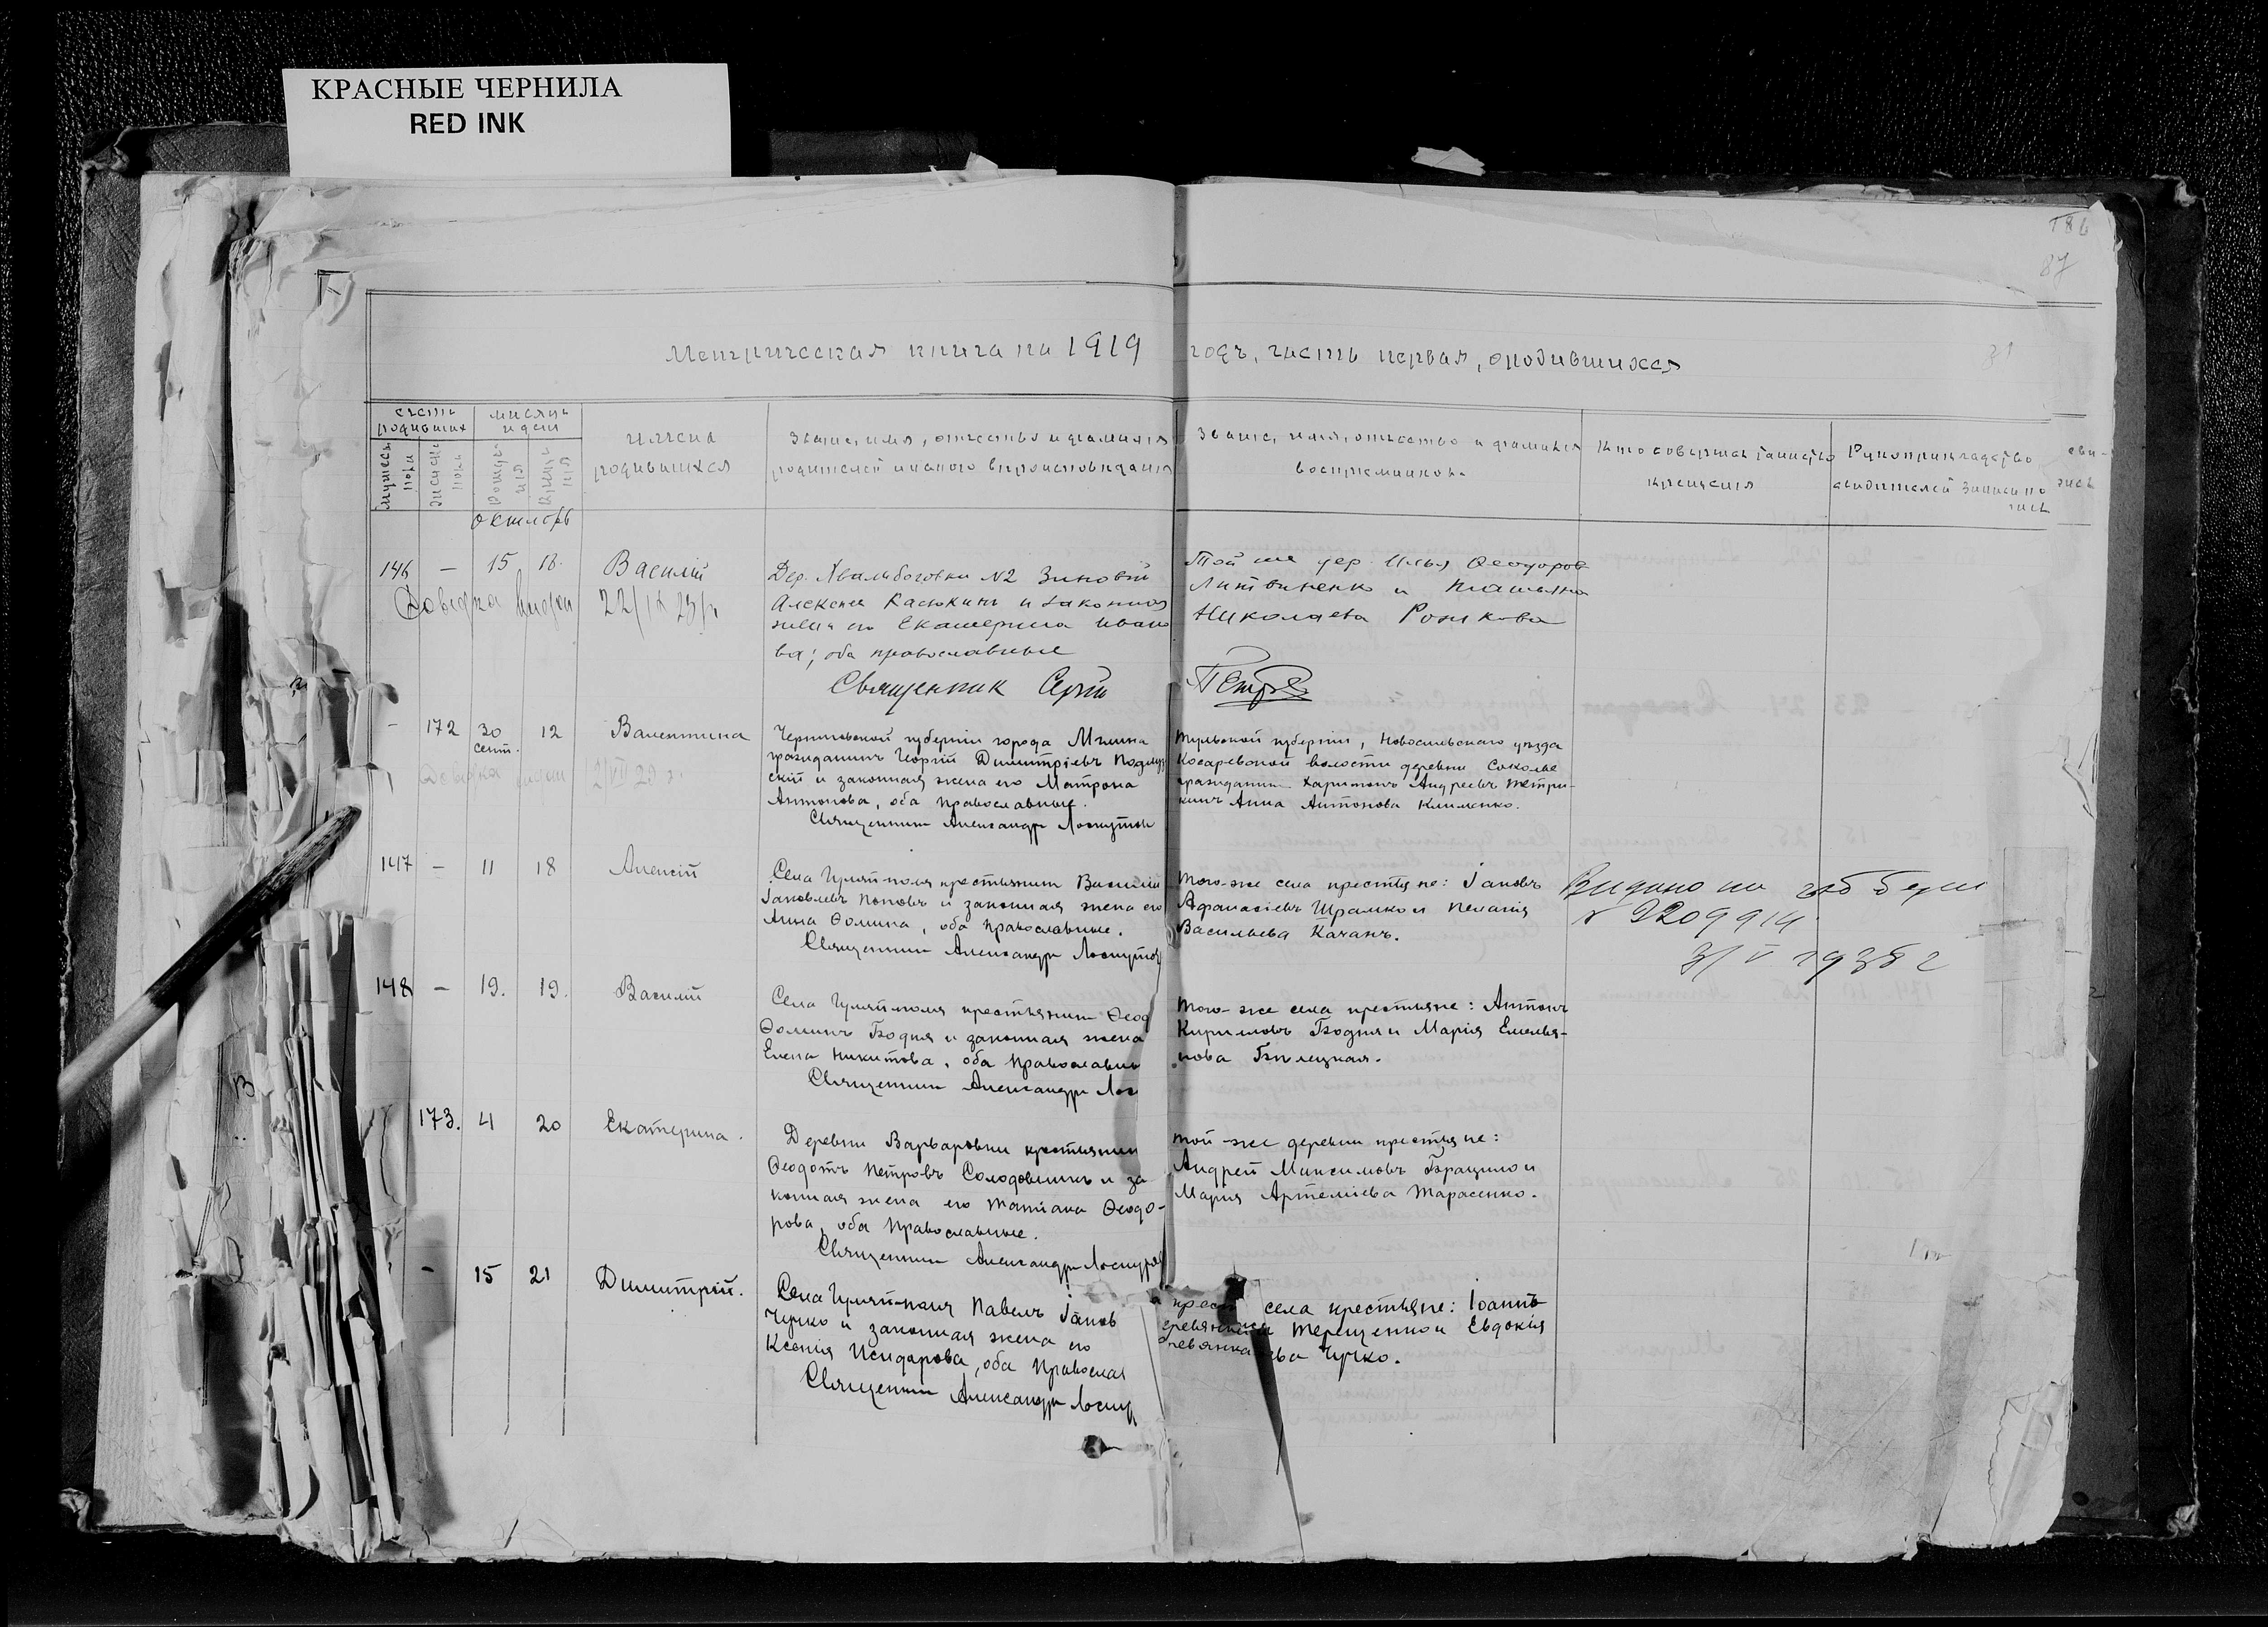 КРАСНЫЕ ЧЕРНИЛА
RED INK
186
87
31
Метрическая книга на 1919 годъ, часть первая, о родившихся
счетъ родивших
мѣсяцъ и день
имена родившихся
Званіе, имя, отчество и фамилія родителей и какого вѣроисповѣданія
Званіе, имя, отчество и фамилія воспріемниковъ
Кто совершал таинство крещенія
Рукоприкладство свидѣтелей записи по
октябрь
146 — 15 18. Василій
Дер. №2 Зиновій
Алексеев и законная
жена его Екатерина Ивано
ва; оба православные
Священник Сергій Петров
Той же дер. Илья Феодоров
Литвиненко и Татьяна
Николаева Рожкова
Довідка видан 22/IX 23 р.
- 172 30 сент. 12 Валентина
Черниговской губерніи города Мглина
гражданинъ Георгій Димитріевъ
скій и законная жена его Матрона
Антонова, оба православные.
Священник Александр Лоскутов
Тульской губерніи, Новосильскаго уѣзда
Косаревской волости деревни Соколье
гражданин Харитонъ Андреевъ Петри-
кинъ Анна Антонова Клименко.
147 — 11 18 Алексій
Села Гуляйполя крестьянин Василій
Іаковлевъ Поповъ и законная жена его
Анна Фомина, оба православные.
Священник Александр Лоскутов
Того-же села крестьяне: Іаковъ
Афанасіевъ Шрамко и Пелагія
Васильева Качанъ.
Видано
№ 2209914
3/V 1938 г
148 — 19. 19. Василій
Села Гуляйполя крестьянин Феод
Фоминъ Бродня и законная жена
Елена Никитова, оба православны
Священник Александр Лос
Того-же села крестьяне: Антонъ
Кирилловъ Бродня и Марія Емелья-
нова Билецкая.
173. 4 20 Екатерина.
Деревни Варваровки крестьянин
Феодотъ Петровъ Солодовникъ и за
конная жена его Татіана Феодо-
рова, оба православные.
Священник Александр Лоскутов
Той-же деревни крестьяне:
Андрей Максимовъ Брацило и
Марія Артеміева Тарасенко.
- 15 21 Димитрій.
Села Гуляйполя Павелъ Іаков
Чучко и законная жена его
Ксенія Исидорова, оба Православ
Священник Александр Лоскут
села крестьяне: Іоаннъ
Терещенко и Евдокія
Чучко.